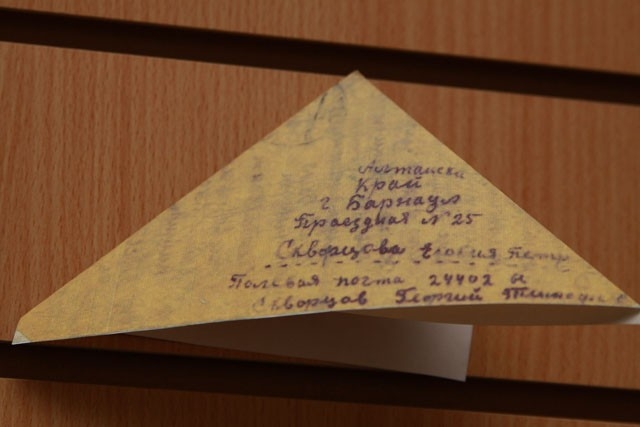 Алтайски
край
г. Барнаул
Проездная N 25
Скворцова Петр
Полевая почта 24402 ы
Скворцов Георгий